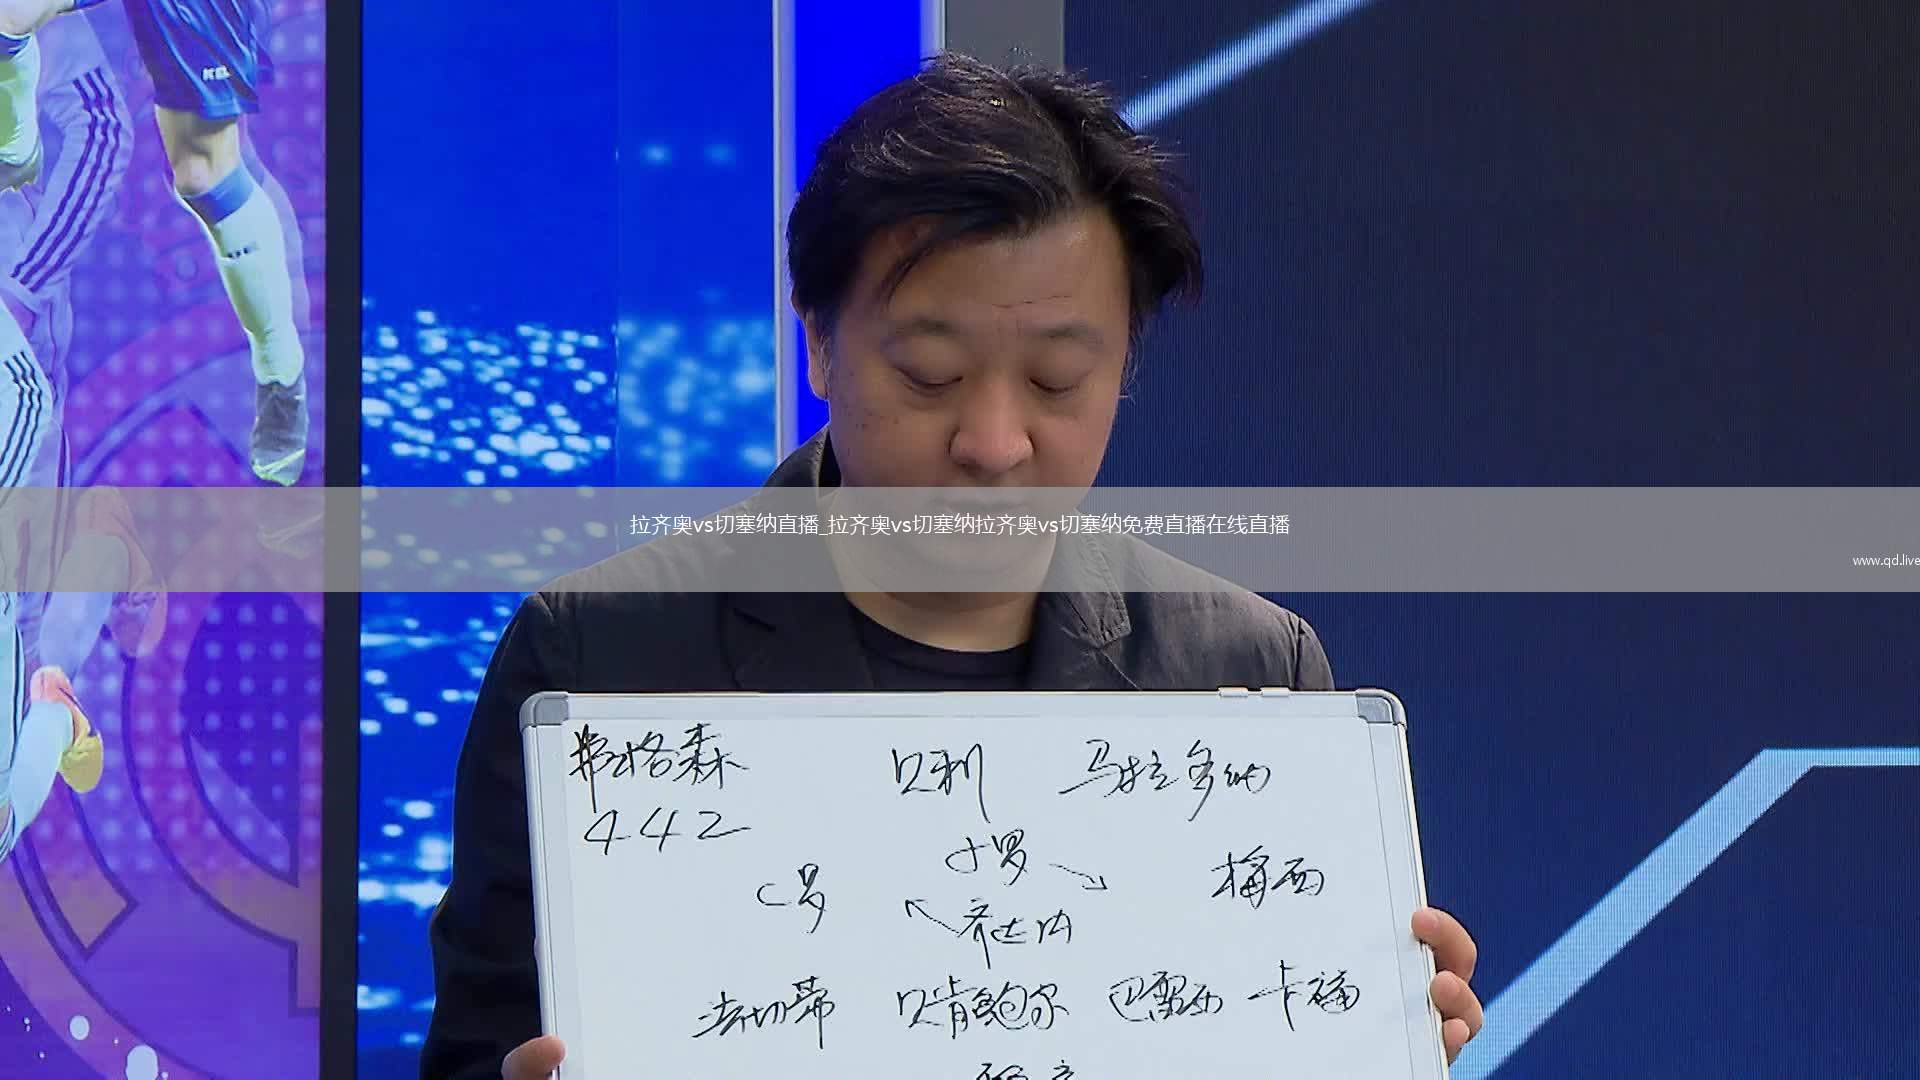 拉齐奥vs切塞纳直播_拉齐奥vs切塞纳拉齐奥vs切塞纳免费直播在线直播
www.qd.live
弗格森 贝利 马拉多纳
442
小罗
C罗 梅西
齐达内
法切蒂 贝肯鲍尔 巴雷西 卡福